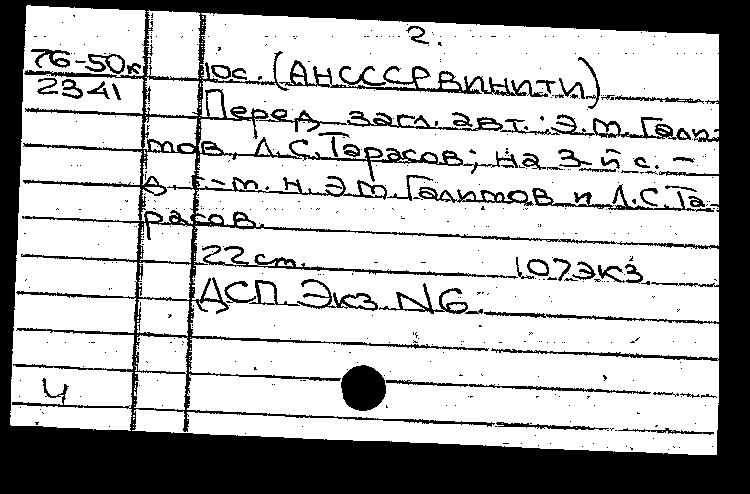 2.
76-50к
2341
10с. (АН СССР ВИНИТИ)
Перед загл. авт.: Э.М. Гали-
мов, Л.С. Тарасов; на 3-й с. -
д. г-м. н. Э.М. Галимов и Л.С. Та-
расов.
22 см. 107 экз.
ДСП. Экз. N6.
Ч